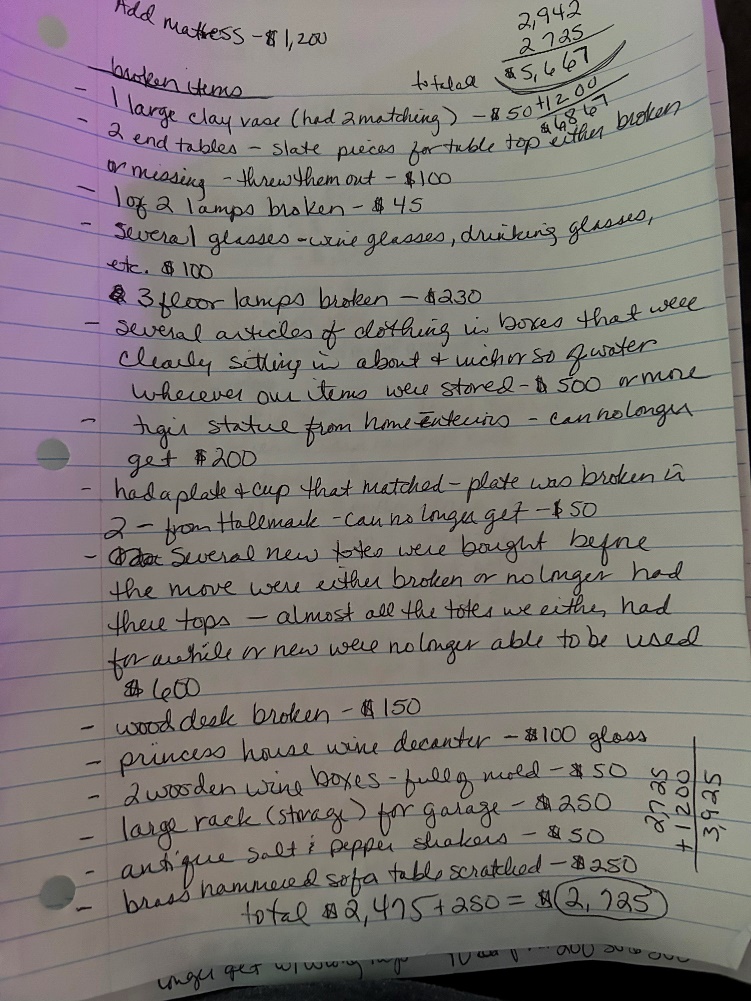 Add mattress - $1,200
2,942
2725
total all $5,667
+1200
$6867
broken items
- 1 large clay vase (had 2 matching) - $50
- 2 end tables - slate pieces for table top either broken
or missing - threw them out - $100
- 1 of 2 lamps broken - $45
- several glasses - wine glasses, drinking glasses,
etc. $100
3 floor lamps broken - $230
- several articles of clothing in boxes that were
clearly sitting in about 4 inch or so of water
wherever our items were stored - $500 or more
- tiger statue from home interiors - can no longer
get $200
- had a plate & cup that matched - plate was broken in
2 - from Hallmark - can no longer get - $50
- several new totes were bought before
the move were either broken or no longer had
there tops - almost all the totes we either had
for awhile or new were no longer able to be used
$600
- wood desk broken - $150
- princess house wine decanter - $100 glass
- 2 wooden wine boxes - full of mold - $50
- large rack (storage) for garage - $250
- antique salt & pepper shakers - $50
- brass hammered sofa table scratched - $250
total $2,475 + 250 = $2,725
2,725
+1200
3,925
longer get